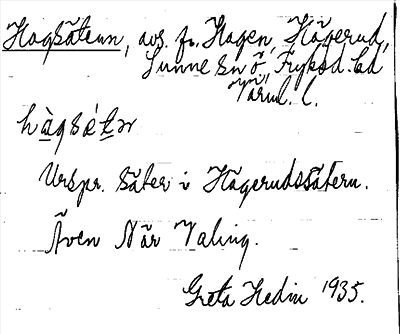 Hagsätern, avs. fr. Hagen, Högerud,
Sunne sn o, Fryksd. hd
Värml. l.
hàgsǽtər
Urspr. säter i Högerudssätern.
Även När Valing.
Greta Hedin 1935.